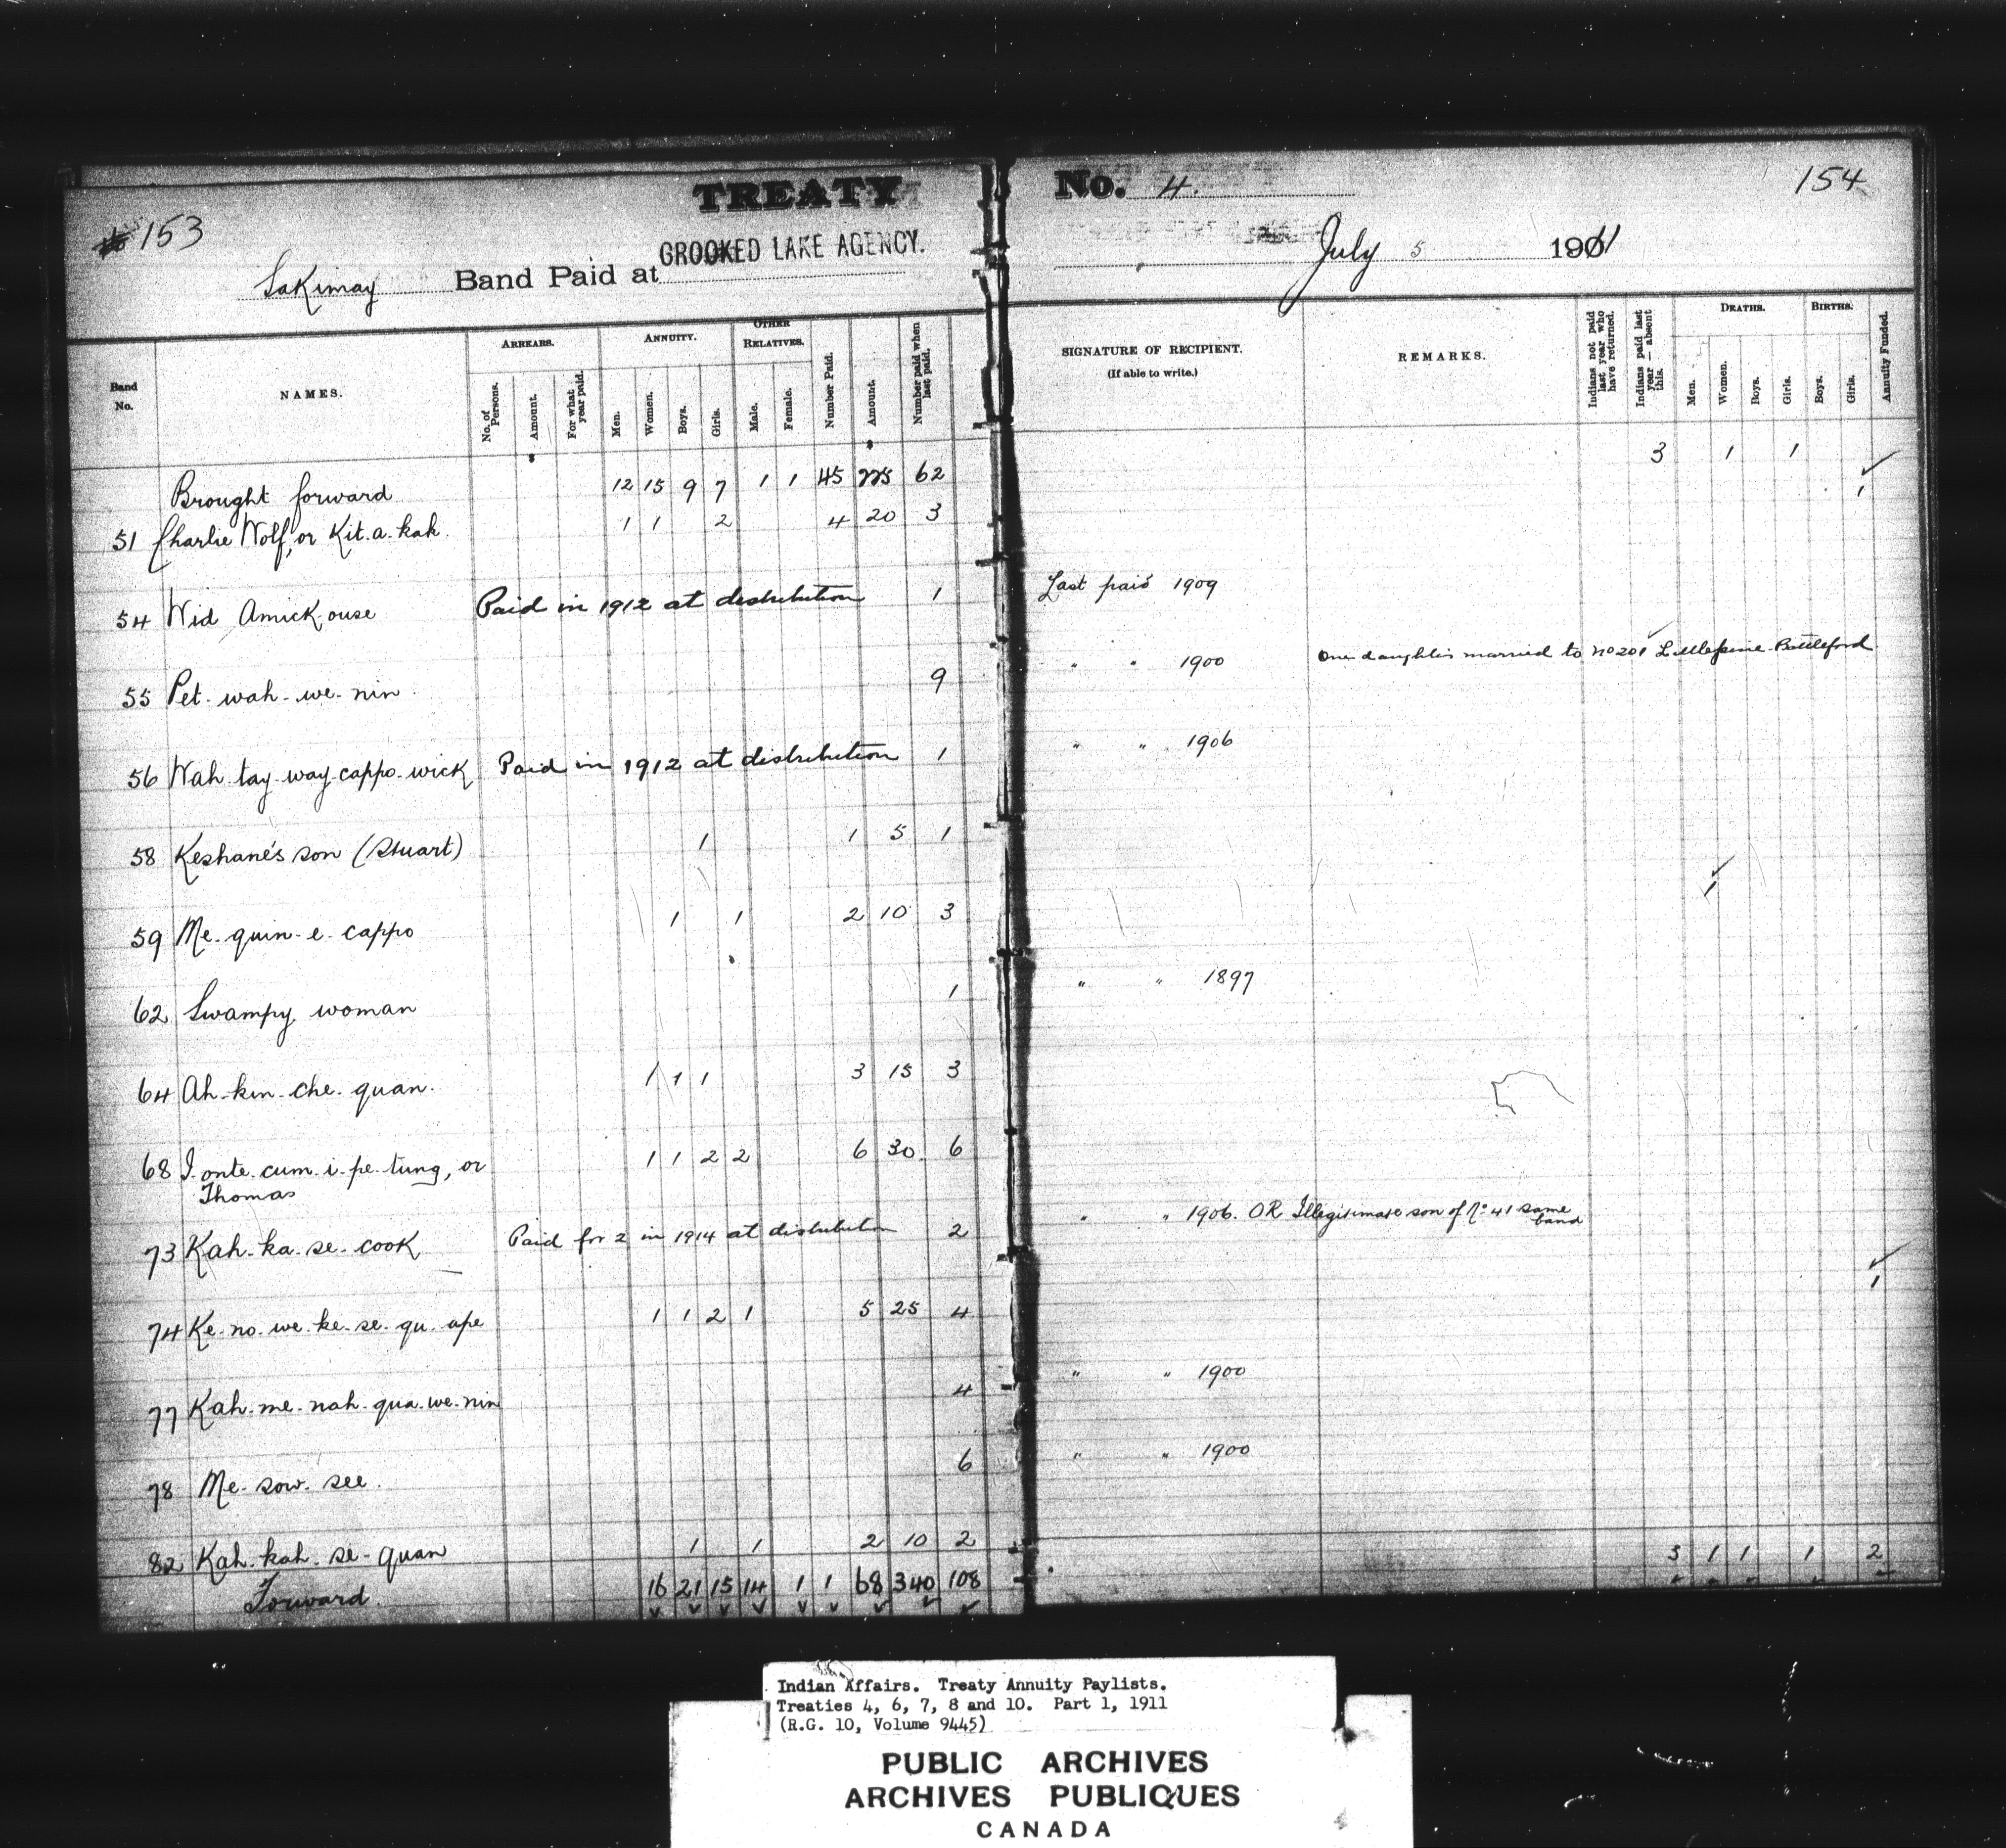 TREATY No. 4.
153
154
Sakimay Band Paid at CROOKED LAKE AGENCY. July 5 1911
Band No.
NAMES.
ARREARS.
No. of Persons.
Amount.
For what year paid.
ANNUITY.
Men.
Women.
Boys.
Girls.
OTHER RELATIVES.
Male.
Female.
Number Paid.
Amount.
Number paid when last paid.
SIGNATURE OF RECIPIENT.
(If able to write.)
REMARKS.
Indians not paid last year who have returned.
Indians paid last year — absent this.
DEATHS.
Men.
Women.
Boys.
Girls.
BIRTHS.
Boys.
Girls.
Annuity Funded.
Brought forward 12 15 9 7 1 1 45 225 62 3 1 1
51 Charlie Wolf, or Kit.a.kak. 1 1 2 4 20 3 1
54 Wid Amick.ouse Paid in 1912 at distribution 1 Last paid 1909
55 Pet-wah-we-nin 9 " " 1900 One daughter married to No 201 Littlepine Battleford
56 Wah.tay-way-cappo-wick Paid in 1912 at distribution 1 " " 1906
58 Keshane's son (Stuart) 1 1 5 1
59 Me-quin-e-cappo 1 1 2 10 3 1
62 Swampy woman 1 " " 1897
64 Ah-kin-che-quan. 1 1 1 3 15 3
68 I.onte.cum.i.pe-tung, or 1 1 2 2 6 30 6
Thomas
73 Kah-ka-se-cook Paid for 2 in 1914 at distribution 2 " " 1906. OR Illegitimate son of No 41 same band
74 Ke-no-we-ke-se-qu-ape 1 1 2 1 5 25 4 1
77 Kah-me-nah-qua-we-nin 4 " " 1900
78 Me-sow-see. 6 " " 1900
82 Kah-kah-se-quan 1 1 2 10 2
Forward. 16 21 15 14 1 1 68 340 108 3 1 1 1 2
Indian Affairs. Treaty Annuity Paylists.
Treaties 4, 6, 7, 8 and 10. Part 1, 1911
(R.G. 10, Volume 9445)
PUBLIC ARCHIVES
ARCHIVES PUBLIQUES
CANADA